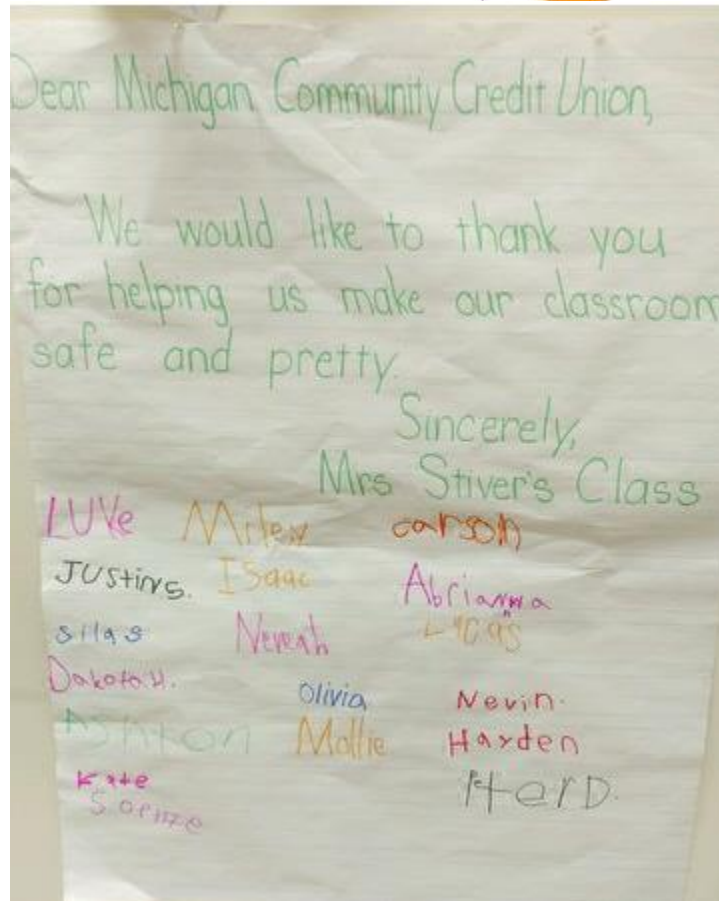 Dear Michigan Community Credit Union,
We would like to thank you
for helping us make our classroom
safe and pretty.
Sincerely,
Mrs Stiver's Class
LUVe carson
JUStin S. ISaac Abrianna
silas Neveah Lucas
Dakota H. Olivia Nevin.
AShton Mollie Hayden
Kate